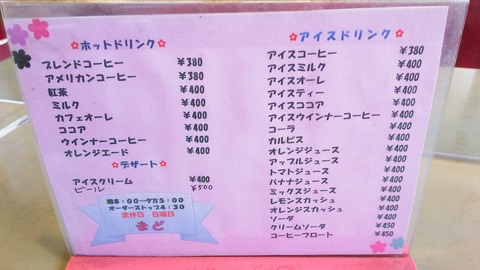 ✿ホットドリンク✿
ブレンドコーヒー ¥380
アメリカンコーヒー ¥380
紅茶 ¥400
ミルク ¥400
カフェオーレ ¥400
ココア ¥400
ウインナーコーヒー ¥400
オレンジエード ¥400
✿デザート✿
アイスクリーム ¥400
ビール ¥500
朝8:00~夕方5:00
オーダーストップ4:30
定休日 日曜日
まど
✿アイスドリンク✿
アイスコーヒー ¥380
アイスミルク ¥400
アイスオーレ ¥400
アイスティー ¥400
アイスココア ¥400
アイスウインナーコーヒー ¥400
コーラ ¥400
カルピス ¥400
オレンジジュース ¥400
アップルジュース ¥400
トマトジュース ¥400
バナナジュース ¥400
ミックスジュース ¥400
レモンスカッシュ ¥400
オレンジスカッシュ ¥400
ソーダ ¥400
クリームソーダ ¥450
コーヒーフロート ¥450